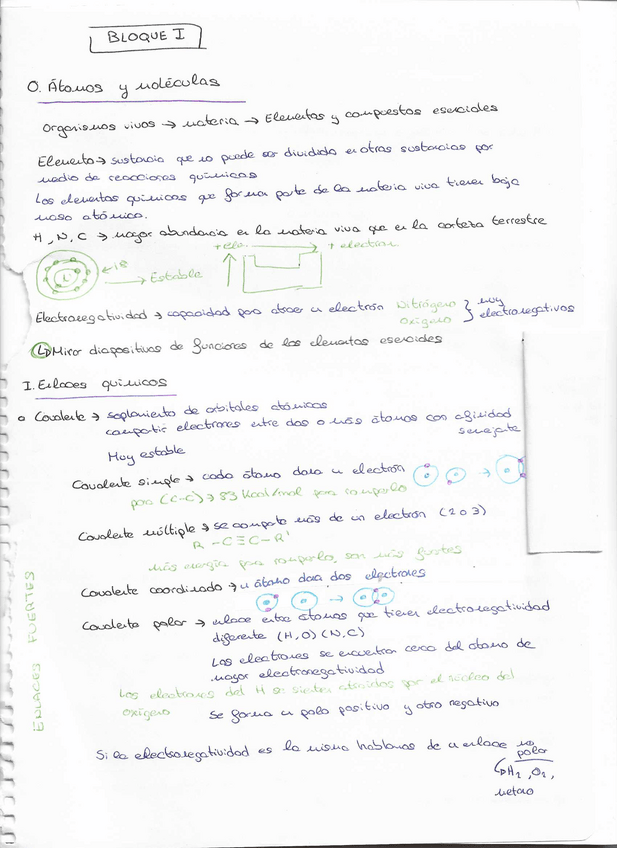 BLOQUE I
0. Átomos y moléculas
Organismos vivos → materia → Elementos y compuestos esenciales
Elemento → sustancia que no puede ser dividida en otras sustancias por
medio de reacciones químicas
Los elementos químicos que forman parte de la materia viva tienen baja
masa atómica.
H, N, C → mayor abundancia en la materia viva que en la corteza terrestre
+ele. → + electron
→ Estable
Electronegatividad → capacidad para atraer un electrón Nitrógeno muy
Oxígeno electronegativos
Mirar diapositivas de funciones de los elementos esenciales
I. Enlaces químicos
Covalente → solapamiento de orbitales atómicos
compartir electrones entre dos o más átomos con afinidad
semejante
Muy estable
Covalente simple → cada átomo dara un electrón
para (C-C) → 83 Kcal/mol para romperlo
Covalente múltiple → se comparte más de un electrón (2 o 3)
R - C≡C-R'
más energía para romperlo, son más fuertes
Covalente coordinado → un átomo dara dos electrones
Covalente polar → enlace entre átomos que tienen electronegatividad
diferente (H,O) (N,C)
Los electrones se encuentran cerca del átomo de
mayor electronegatividad
Los electrones del H se sienten atraídos por el núcleo del
oxígeno
Se forma un polo positivo y otro negativo
ENLACES FUERTES
Si la electronegatividad es la misma hablamos de un enlace no
polar
H2, O2,
metano